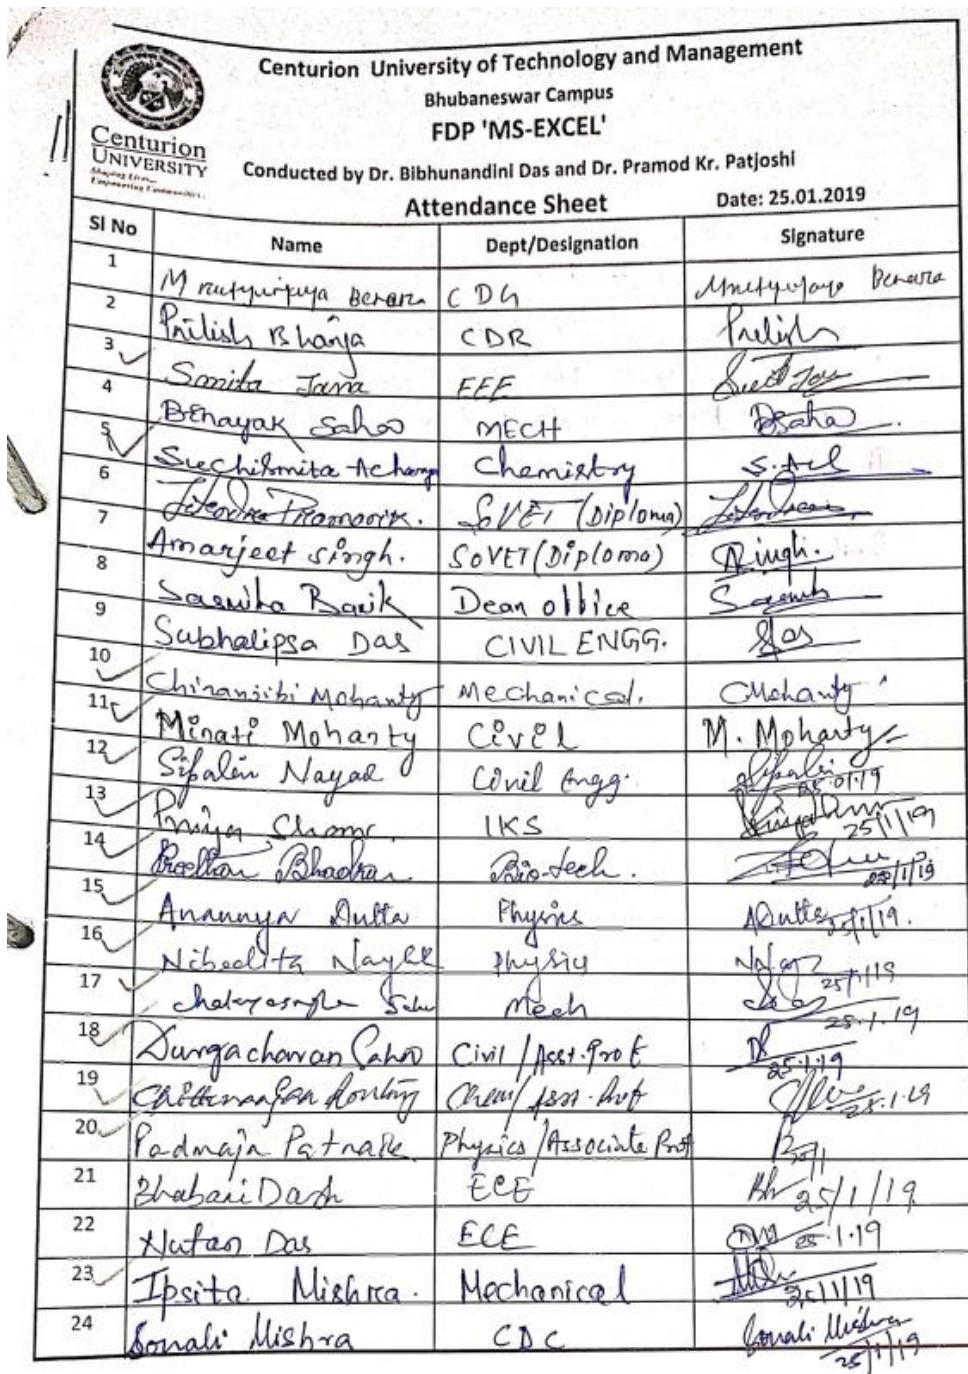 Centurion University of Technology and Management
Bhubaneswar Campus
FDP 'MS-EXCEL'
Centurion
UNIVERSITY
Shaping Lives...
Empowering Communities...
Conducted by Dr. Bibhunandini Das and Dr. Pramod Kr. Patjoshi
Attendance Sheet Date: 25.01.2019
Sl No Name Dept/Designation Signature
1 Mrutyunjaya Behera CDG Mrutyunjaya Behera
2 Pritish Bhanja CDR Pritish
3 Smita Jana EEE
4 Benayak Sahoo MECH BSahoo
5 Suchismita Acharya Chemistry S. Ach
6 Jitendra Pramanik. SoVET (Diploma) Jitendra
7 Amarjeet Singh. SOVET (Diploma) Singh.
8 Sasmita Barik Dean office Sasmita
9 Subhalipsa Das CIVIL ENGG. Das
10 Chiranjibi Mohanty Mechanical. CMohanty
11 Minati Mohanty Civil M. Mohanty
12 Sipalin Nayak Civil Engg. Sipalin 25.01.19
13 Priya IKS 25/1/19
14 Bhadran Bio-tech.
15 Anannya Dutta Physics ADutta 25/1/19.
16 Nibedita Nayak Physics 25/1/19
17 Sahu Mech 25.1.19
18 Durgacharan Sahoo Civil / Asst. Prof 25.1.19
19 Chittaranjan Routray Chem / Asst. Prof 25.1.19
20 Padmaja Patnaik Physics / Associate Prof
21 Bhabani Dash ECE 25/1/19
22 Nutan Das ECE 25.1.19
23 Ipsita Mishra. Mechanical 25/1/19
24 Sonali Mishra CDC Sonali Mishra 25/1/19